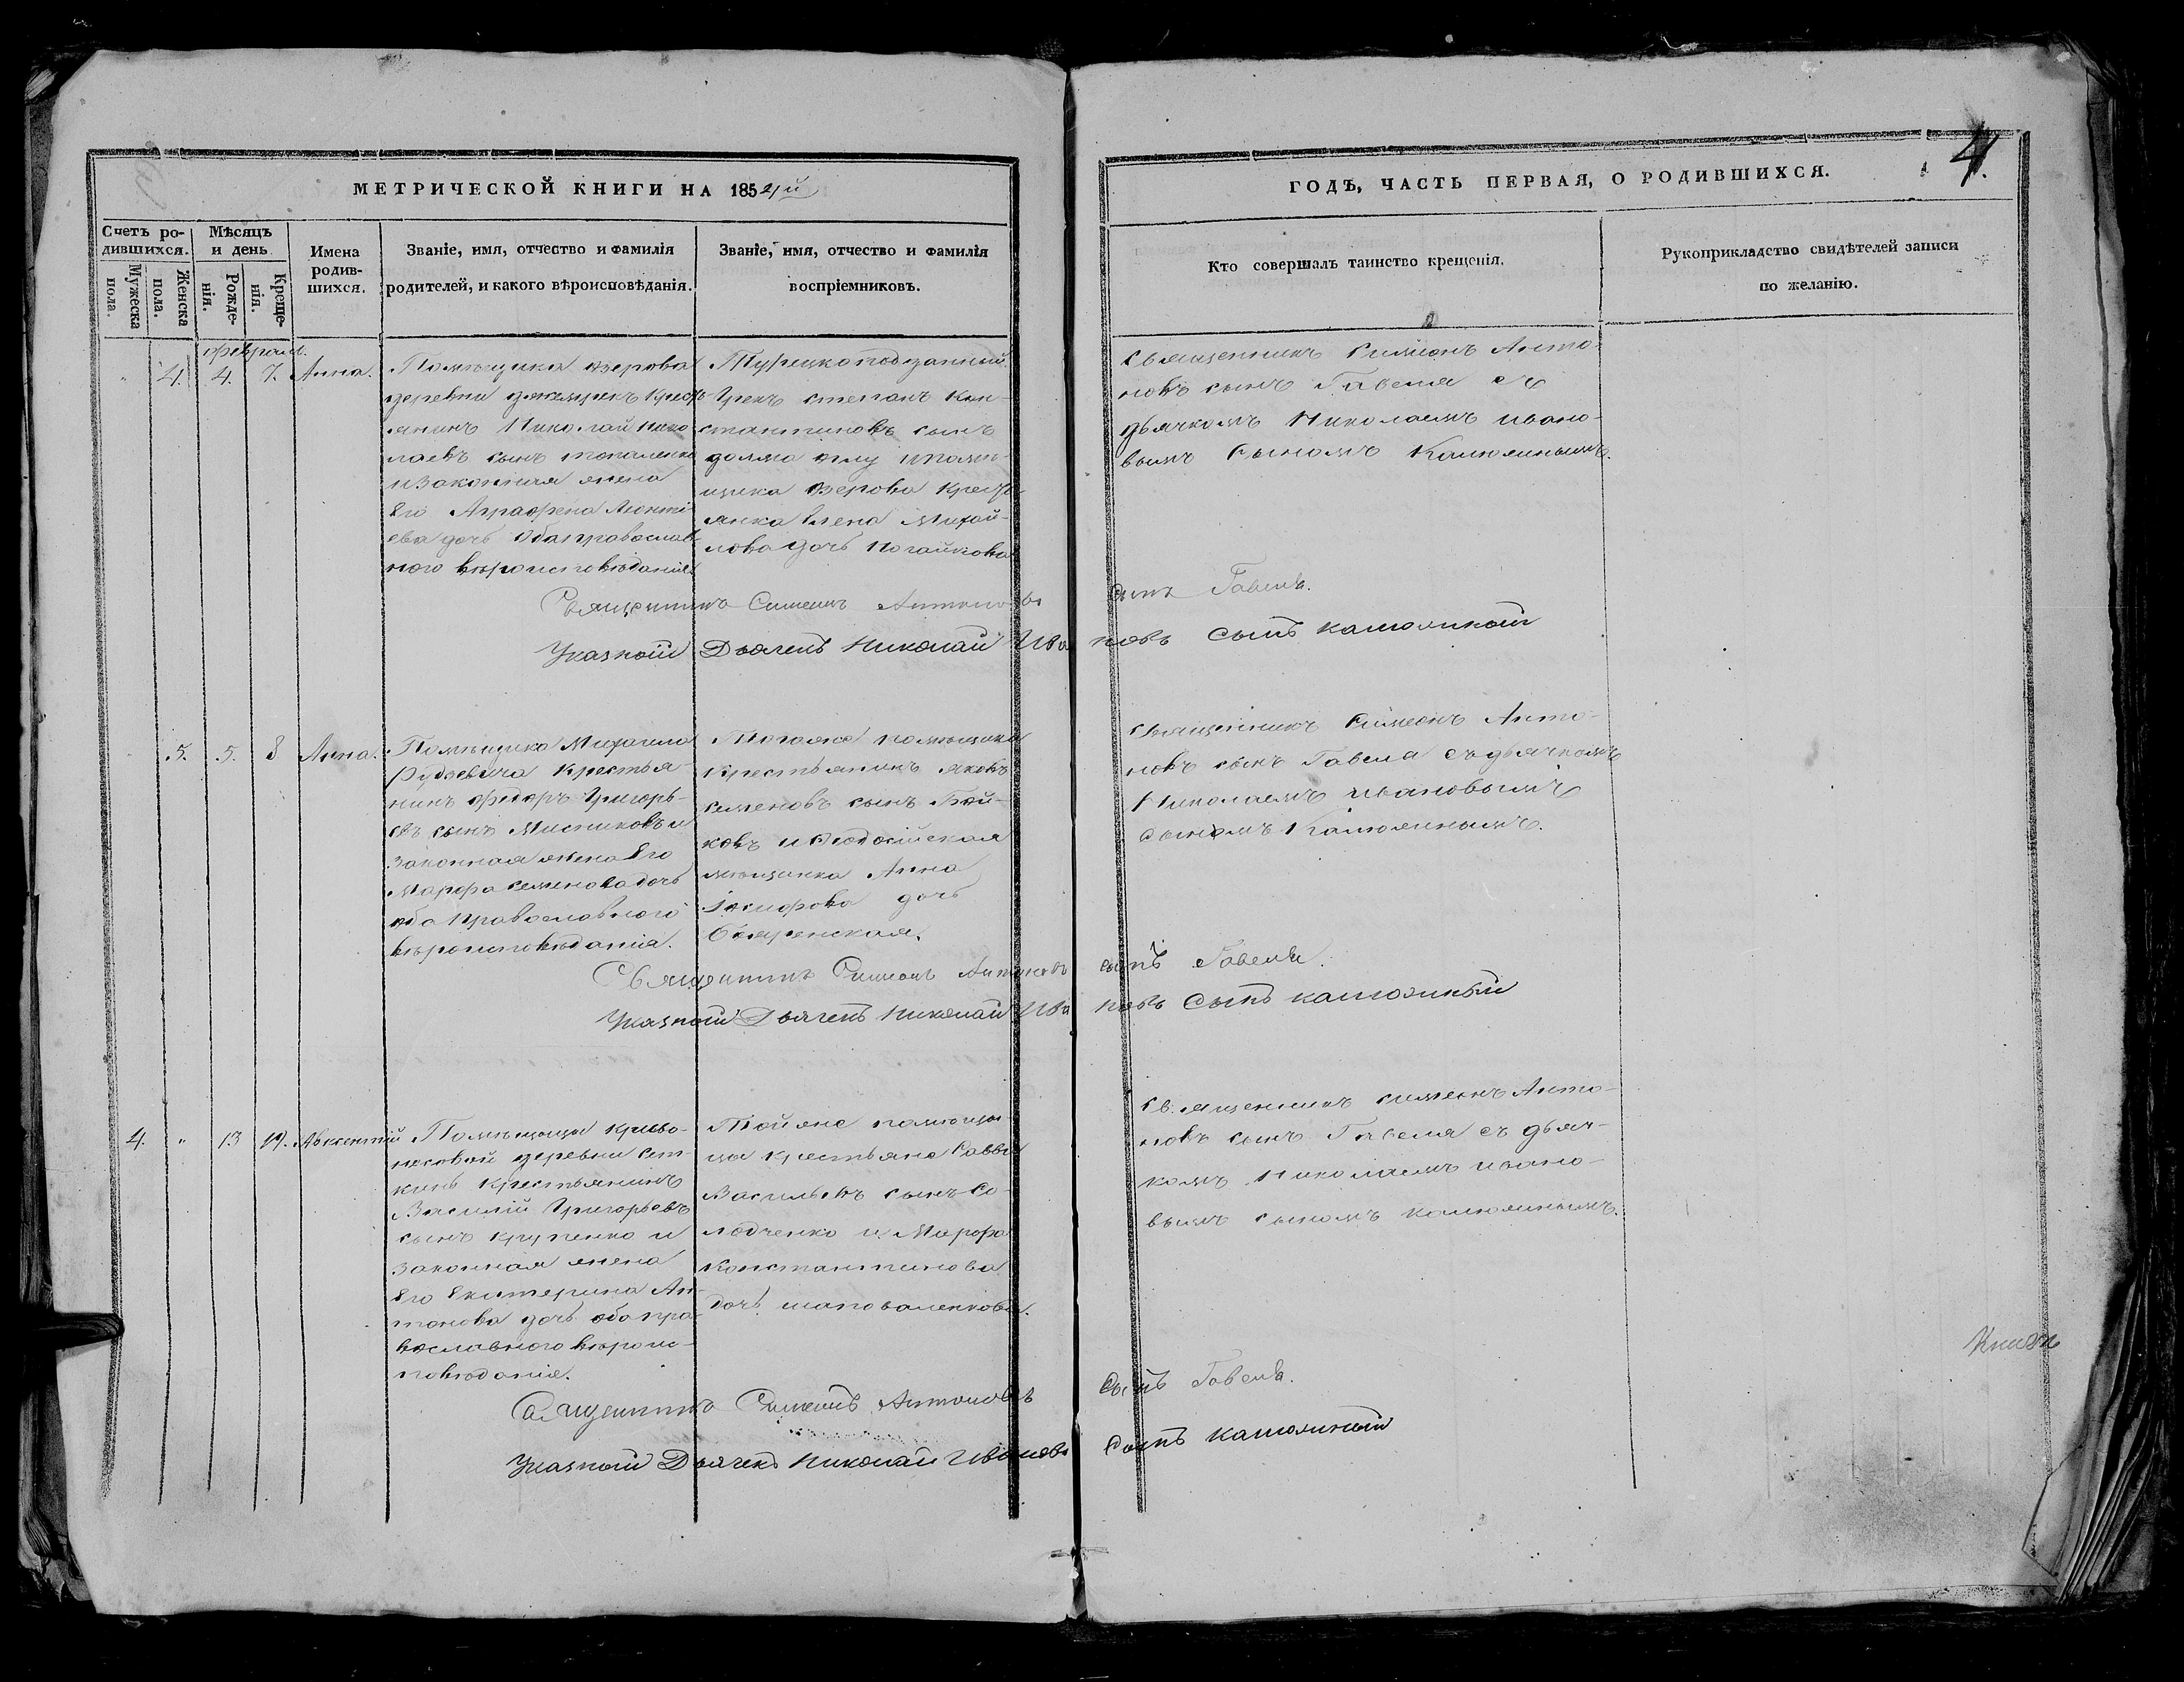 МЕТРИЧЕСКОЙ КНИГИ НА 1854й
ГОДЪ, ЧАСТЬ ПЕРВАЯ, О РОДИВШИХСЯ.
4.
Счетъ ро-
дившихся.
Мужеска
пола.
Женска
пола.
Мѣсяцъ
и день
Рожде-
нія.
Креще-
нія.
Имена
родив-
шихся.
Званіе, имя, отчество и фамилія
родителей, и какого вѣроисповѣданія.
Званіе, имя, отчество и фамилія
воспріемниковъ.
Кто совершалъ таинство крещенія.
Рукоприкладство свидѣтелей записи
по желанію.
февраль.
" 4. 4. 7. Анна.
Помѣщика Озерова
деревни крестъ
янинъ Николай Нико
лаевъ сынъ
и Законная жена
Его Аграфена Леонті
ева дочь Оба православ
ного вѣроисповѣданія
Турецкоподданный
Грекъ Степанъ Кон-
стантиновъ сынъ
и помѣ-
щика Озерова кресть
янка Елена Михай-
лова дочь Ногайкова
Священникъ Симеонъ Анто-
новъ сынъ Гавеля съ
дьячкомъ Николаемъ Ивано-
вымъ сыномъ
Священникъ Симеонъ Антоновъ сынъ Гавеля.
Указной Дьячекъ Николай Ивановъ сынъ
5. 5. 8 Анна.
Помѣщика Михаила
крестья
нинъ Федоръ Григорь-
евъ сынъ Мисниковъ и
Законная жена Его
Марфа Семенова дочь
оба православного
вѣроисповѣданія.
Тогоже помѣщика
Крестьянинъ Яковъ
Семеновъ сынъ Бой-
ковъ и Феодосійская
мѣщанка Анна
дочь
Священникъ Симеонъ Анто-
новъ сынъ Гавеля съ дьячкомъ
Николаемъ Ивановымъ
сыномъ
Священникъ Симеонъ Антоновъ сынъ Гавеля.
Указной Дьячекъ Николай Ивановъ сынъ
4. " 13 19. Авксентій
Помѣщицы Криво-
носовой деревни
Крестьянинъ
Василій Григорьевъ
сынъ Крупенко и
Законная жена
Его Екатерина Ан-
тонова дочь оба пра-
вославного вѣроис-
повѣданія.
Той же помѣщи
цы крестьяне Савва
Васильевъ сынъ Со-
лодченко и Марфа
Константинова
дочь Шаповаленкова.
Священникъ Симеонъ Анто-
новъ сынъ Гавеля съ дьяч-
комъ Николаемъ Ивано-
вымъ сыномъ
Священникъ Симеонъ Антоновъ сынъ Гавеля.
Указной Дьячекъ Николай Ивановъ сынъ